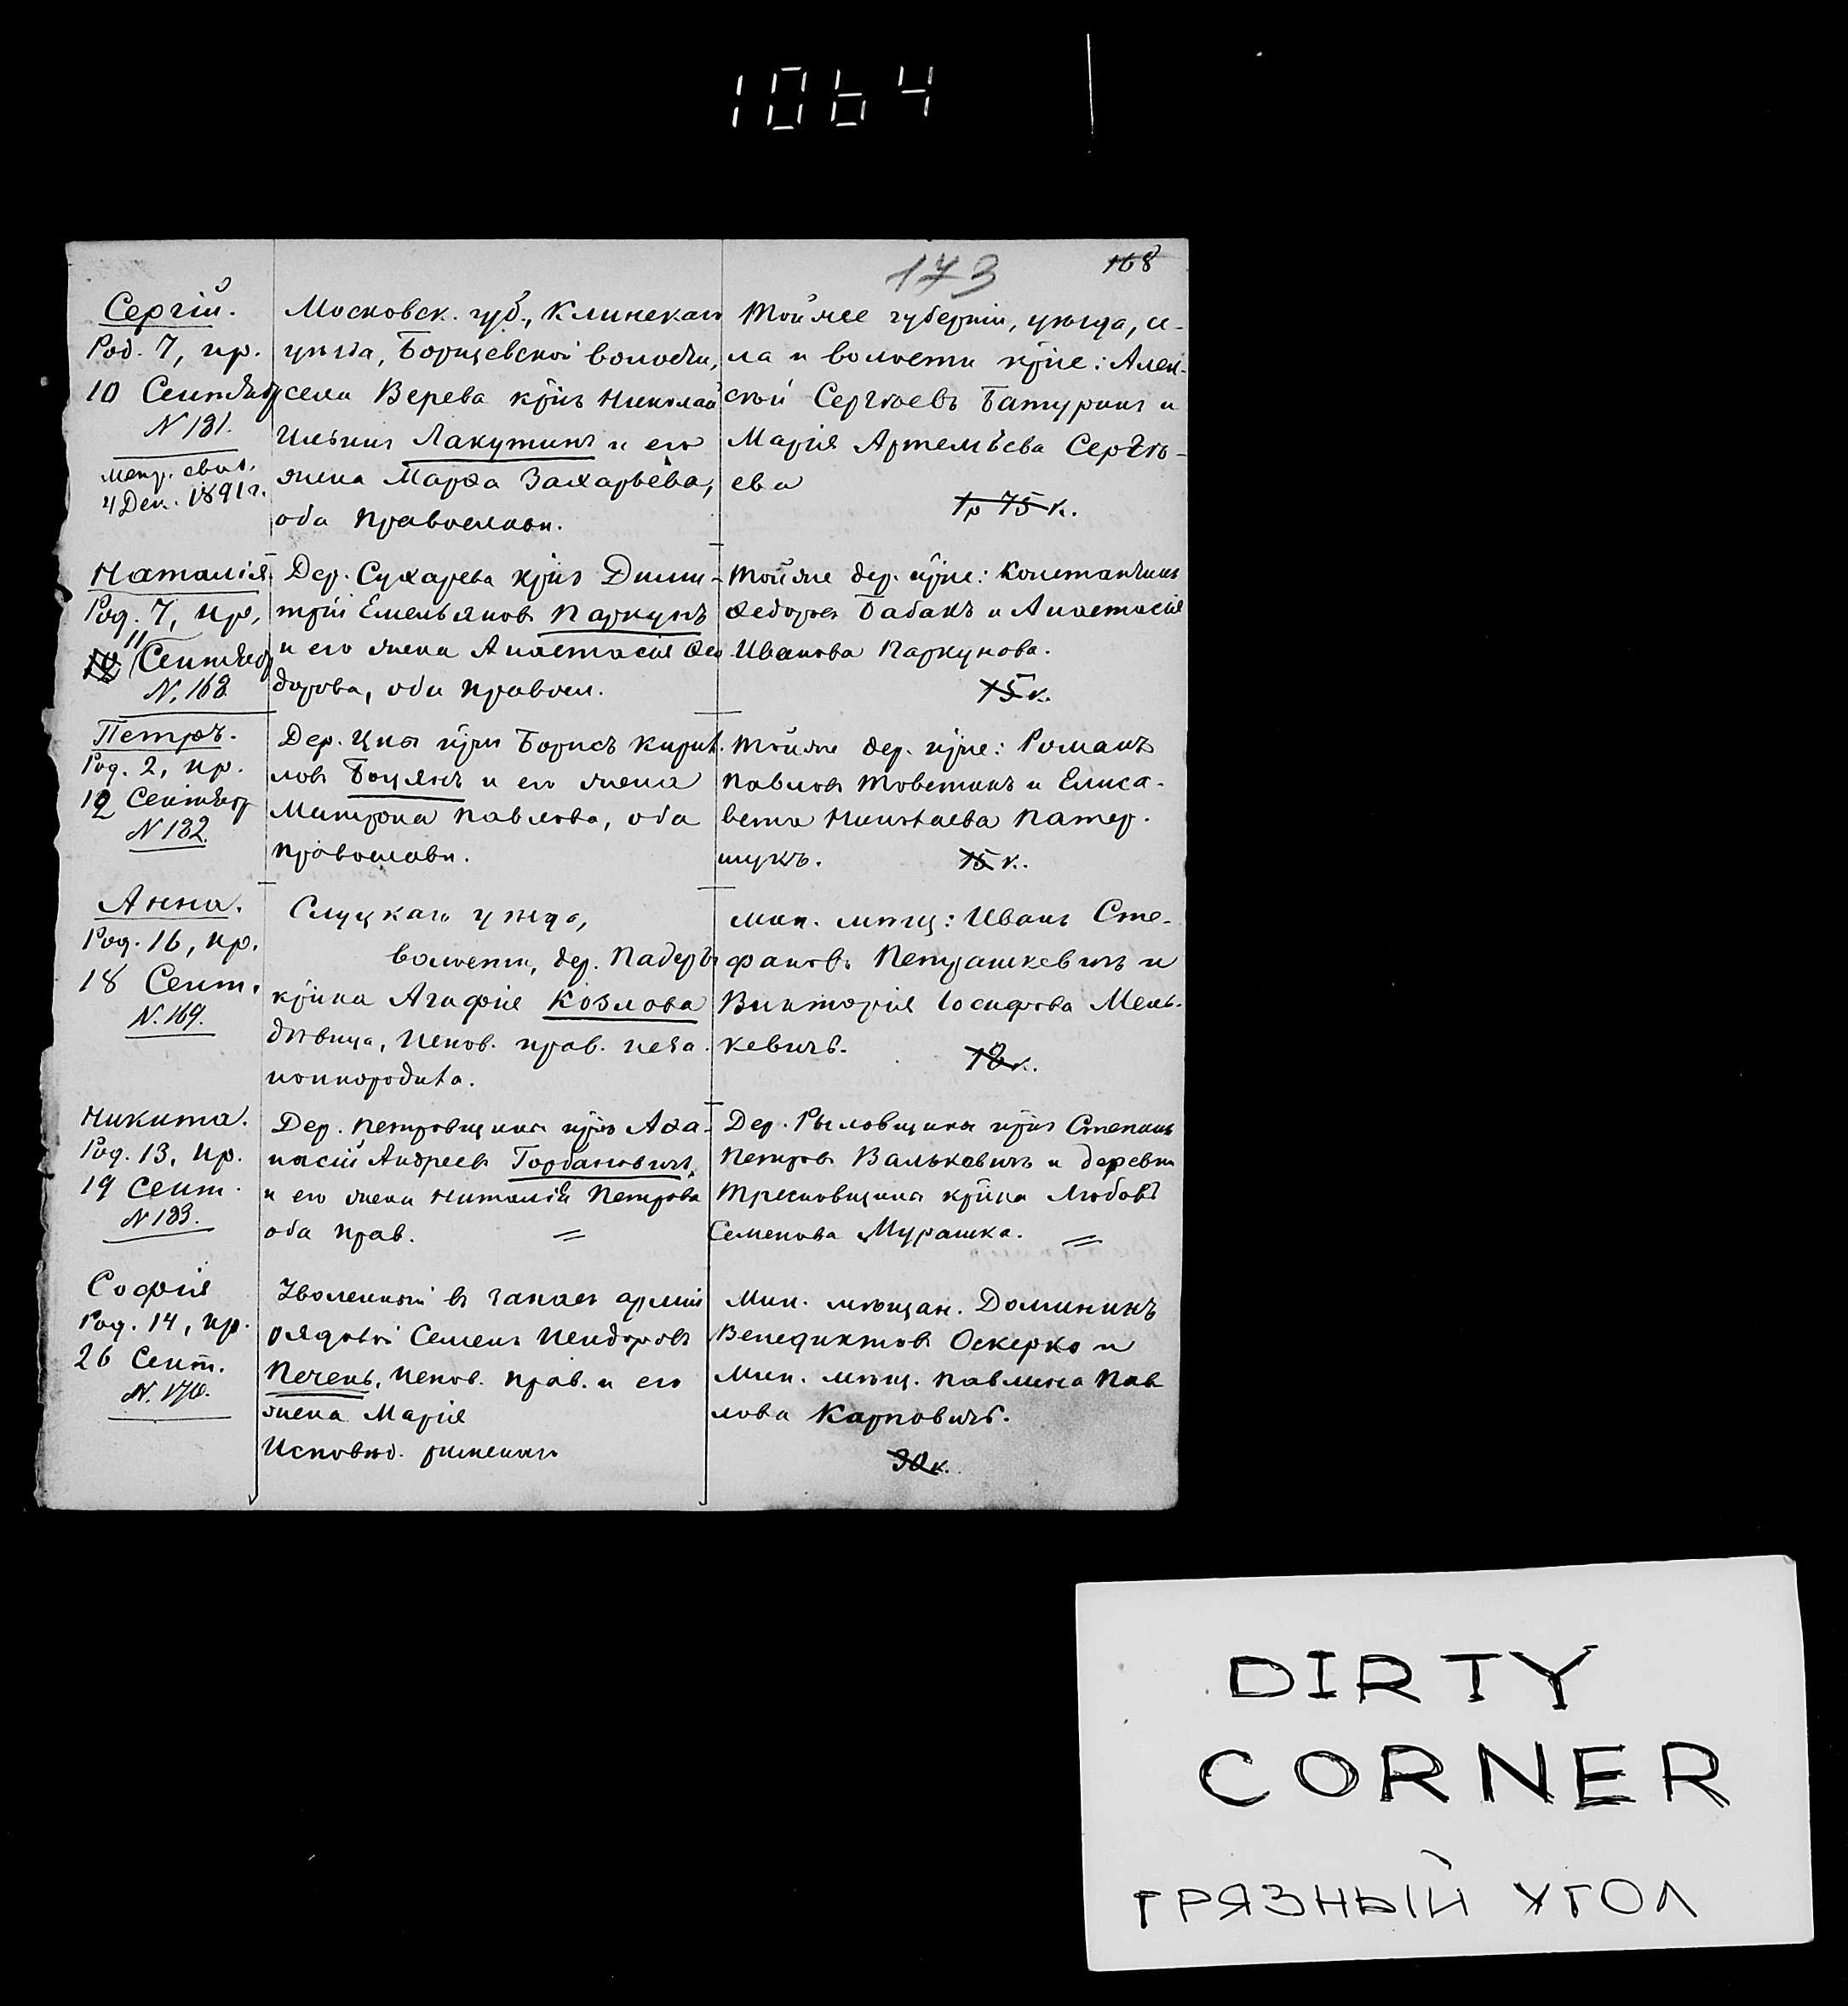 1064
173
168
Сергій.
Род. 7, кр.
10 Сентябр
N 131.
Метр. свид.
4 Дек. 1891 г.
Московск. губ., Клинскаго
уѣзда, Борщевской волости,
села Верева кр̃нъ Николай
Ильинъ Лакутинъ и его
жена Марѳа Захарьева,
оба православн.
Той же губерніи, уѣзда, се-
ла и волости кр̃не: Алек-
сѣй Сергѣевъ Батуринъ и
Марія Артемьева Сергѣ-
ева
1р 75 к.
Наталія.
Род. 7, кр.
11
Сентябр
N. 168
Дер. Сухарева кр̃нъ Дими-
трій Емельяновъ Паркунъ
и его жена Анастасія Ѳео
дорова, оба правосл.
Той же дер. кр̃не: Константинъ
Ѳедоровъ Бабакъ и Анастасія
Иванова Паркунова.
15 к.
Петръ.
Род. 2, кр.
12 Сентябр
N 132.
Дер. Цны кр̃нъ Борисъ Кирил.
ловъ Боцянъ и его жена
Матрона Павлова, оба
православн.
Той же дер. кр̃не: Романъ
Павловъ Товстикъ и Елиса-
вета Николаева Патер-
шукъ.
15 к.
Анна.
Род. 16, кр.
18 Сент.
N. 169.
Слуцкаго уѣзда,
волости, дер. Падеръ
кр̃нка Агафія Козлова
дѣвица, испов. прав. неза-
коннорожд.
Мин. мѣщ: Иванъ Сте-
фановъ Петрашкевичъ и
Викторія Іосифова Мень-
кевичъ.
18 к.
Никита.
Род. 13, кр.
19 Сент.
N 133.
Дер. Петровщины кр̃нъ Аѳа-
насій Андреевъ Горбановичъ
и его жена Наталія Петрова
оба прав. =
Дер. Рыловщины кр̃нъ Степанъ
Петровъ Вальковичъ и деревни
Тресковщины кр̃нка Любовь
Семенова Мурашка. =
Софія
Род. 14, кр.
26 Сент.
N. 170.
Уволенный въ запасъ арміи
рядовой Семенъ Исидоровъ
Печень, испов. прав. и его
жена Марія
Исповѣд. римскаго
Мин. мѣщан. Доминикъ
Венедиктовъ Оскерко и
Мин. мѣщ. Павлина Пав
лова Карповичъ.
30 к.
DIRTY
CORNER
ГРЯЗНЫЙ УГОЛ